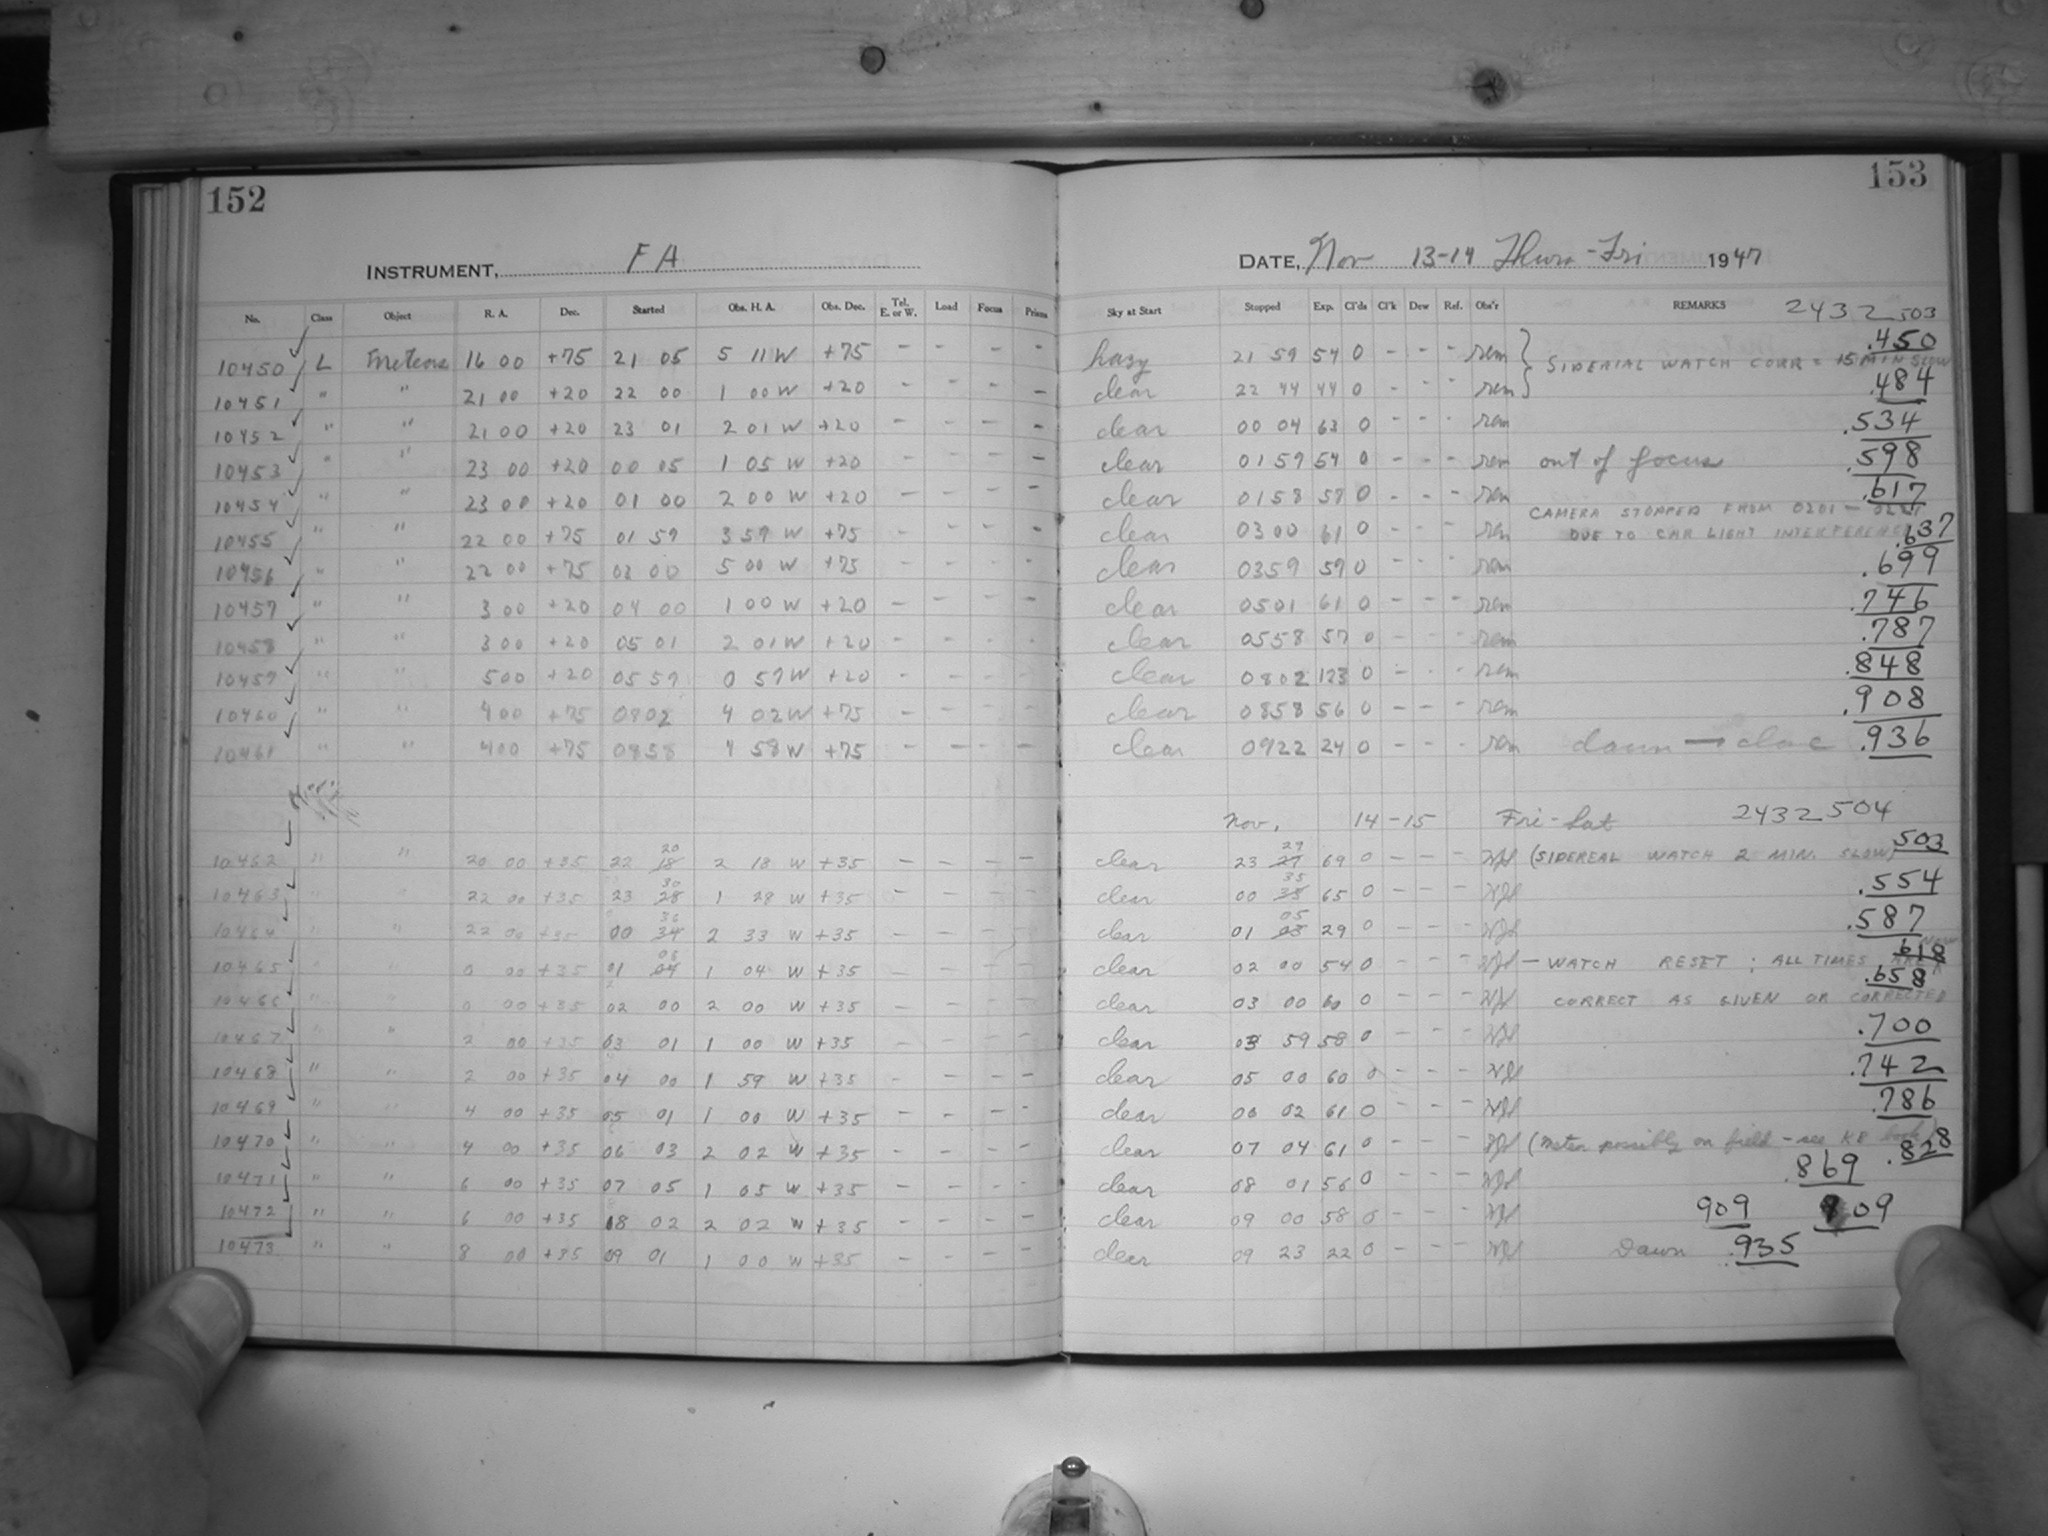 152
153
INSTRUMENT, FA
DATE, Nov 13-14 Thurs-Fri 1947
No. Class Object R. A. Dec. Started Obs. H. A. Obs. Dec. Tel. E. or W. Load Focus Prisms Sky at Start Stopped Exp. Cl'ds Cl'k Dew Ref. Obs'r REMARKS 2432503
10450 L Meteors 16 00 +75 21 05 5 11 W +75 - - - - hazy 21 59 54 0 - - - rem SIDERIAL WATCH CORR = 15 MIN SLOW .450
10451 " " 21 00 +20 22 00 1 00 W +20 - - - - clear 22 44 44 0 - - - rem .484
10452 " " 21 00 +20 23 01 2 01 W +20 - - - - clear 00 04 63 0 - - - rem .534
10453 " " 23 00 +20 00 05 1 05 W +20 - - - - clear 01 59 54 0 - - - rem out of focus .598
10454 " " 23 00 +20 01 00 2 00 W +20 - - - - clear 01 58 58 0 - - - rem .617
CAMERA STOPPED FROM 0201 -
10455 " " 22 00 +75 01 59 3 59 W +75 - - - - clear 03 00 61 0 - - - rem DUE TO CAR LIGHT INTERFERENCE .637
10456 " " 22 00 +75 03 00 5 00 W +75 - - - - clear 0359 59 0 - - - rem .699
10457 " " 3 00 +20 04 00 1 00 W +20 - - - - clear 0501 61 0 - - - rem .746
10458 " " 3 00 +20 05 01 2 01 W +20 - - - - clear 0558 57 0 - - - rem .787
10459 " " 5 00 +20 05 59 0 59 W +20 - - - - clear 0802 123 0 - - - rem .848
10460 " " 4 00 +75 0802 4 02 W +75 - - - - clear 0858 56 0 - - - rem .908
10461 " " 4 00 +75 0858 4 58 W +75 - - - - clear 0922 24 0 - - - rem dawn .936
Nov. 14-15 Fri-Sat 2432504
10462 " " 20 00 +35 22 18 20 2 18 W +35 - - - - clear 23 27 29 69 0 - - - (SIDEREAL WATCH 2 MIN. SLOW) 503
10463 " " 22 00 +35 23 28 30 1 28 W +35 - - - - clear 00 33 35 65 0 - - - .554
10464 " " 22 00 +35 00 34 36 2 33 W +35 - - - - clear 01 03 05 29 0 - - - .587
10465 " " 0 00 +35 01 04 06 1 04 W +35 - - - - clear 02 00 54 0 - - - — WATCH RESET; ALL TIMES ARE .618
.658
10466 " " 0 00 +35 02 00 2 00 W +35 - - - - clear 03 00 60 0 - - - CORRECT AS GIVEN OR CORRECTED
10467 " " 2 00 +35 03 01 1 00 W +35 - - - - clear 03 59 58 0 - - - .700
10468 " " 2 00 +35 04 00 1 59 W +35 - - - - clear 05 00 60 0 - - - .742
10469 " " 4 00 +35 05 01 1 00 W +35 - - - - clear 06 02 61 0 - - - .786
10470 " " 4 00 +35 06 03 2 02 W +35 - - - - clear 07 04 61 0 - - - (Meteor possibly on field - see KE book) .828
10471 " " 6 00 +35 07 05 1 05 W +35 - - - - clear 08 01 56 0 - - - .869
10472 " " 6 00 +35 08 02 2 02 W +35 - - - - clear 09 00 58 0 - - - 909 09
10473 " " 8 00 +35 09 01 1 00 W +35 - - - - clear 09 23 22 0 - - - Dawn .935